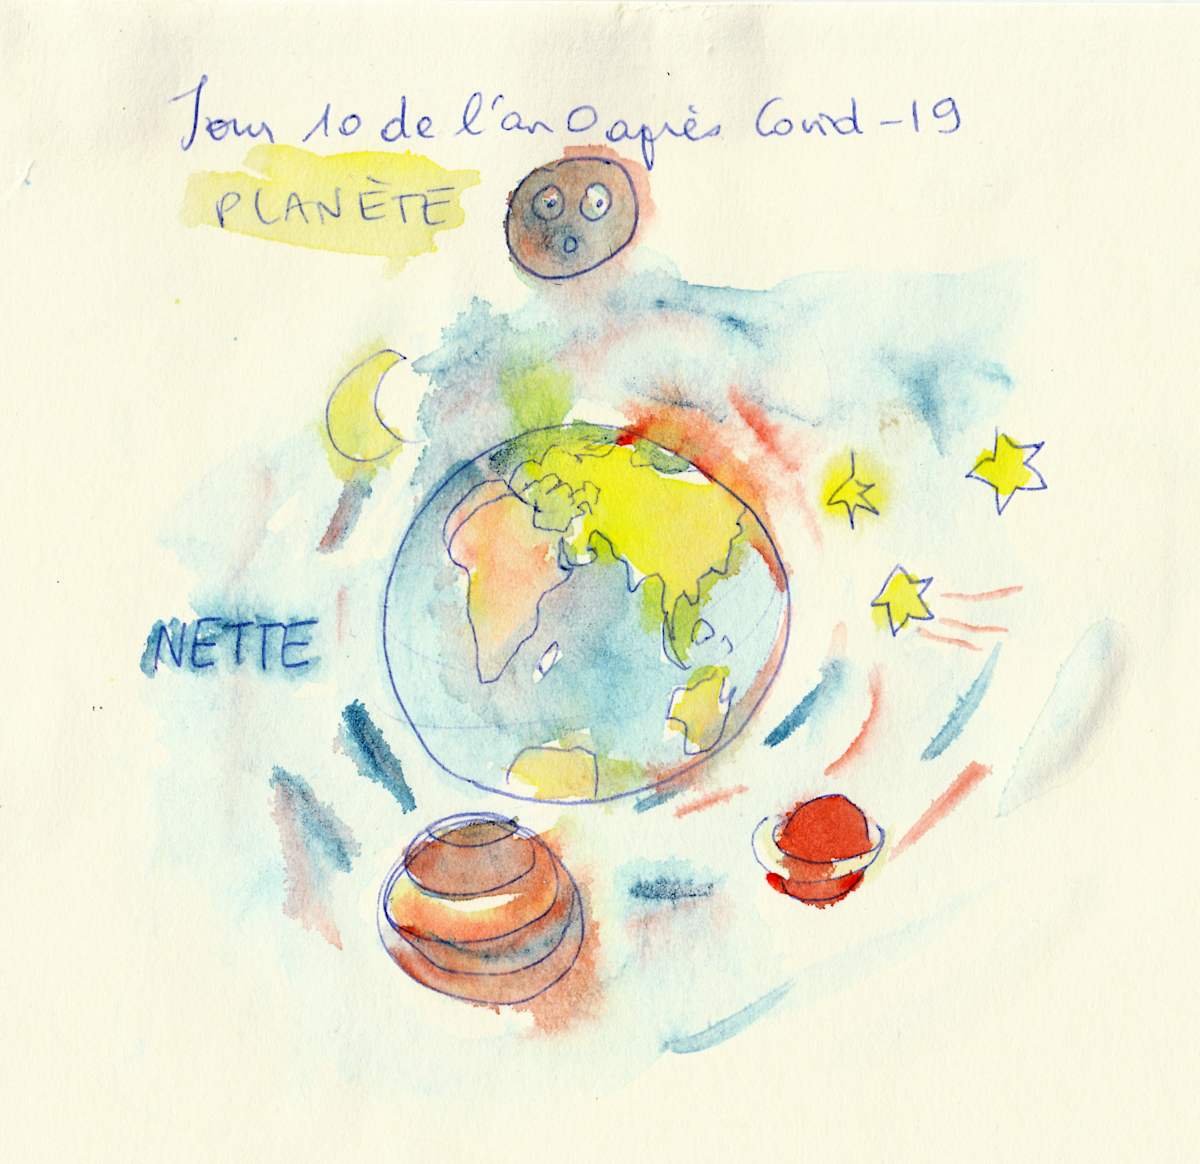 Jour 10 de l'an 0 après Covid-19
PLANÈTE
NETTE